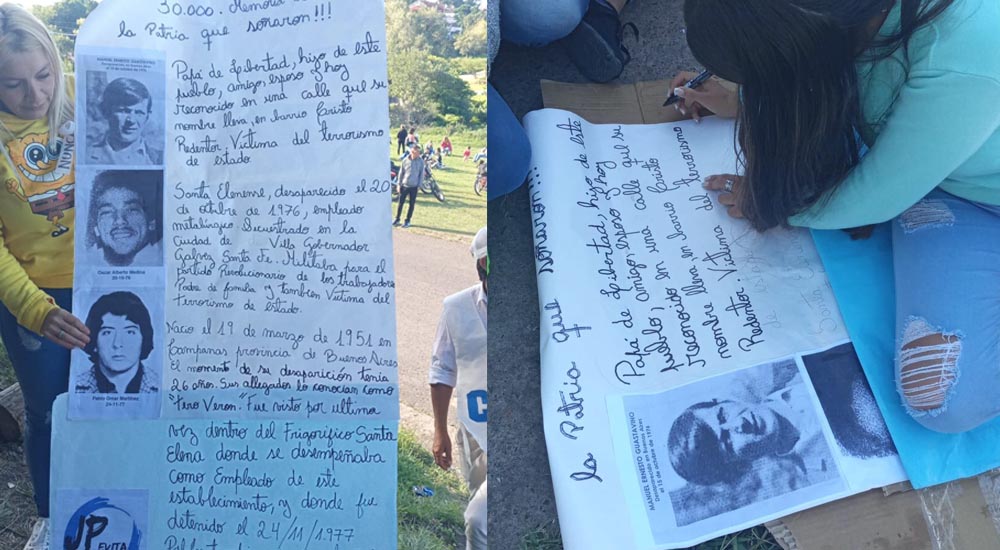 30.000. Memoria
la Patria que soñaron!!!
MANUEL ERNESTO GUASTAVINO
Desaparecido en Buenos Aires
el 15 de octubre de 1976
Papá de Libertad, hijo de este
pueblo, amigo, esposo y hoy
reconocido en una calle que su
nombre lleva, en barrio Cristo
Redentor. Victima del terrorismo
de estado.
Santa Elenense, desaparecido el 20
de octubre de 1976, empleado
metalúrgico Secuestrado en la
Ciudad de Villa Gobernador
Galvez Santa Fe. Militaba para el
partido Revolucionario de los trabajadores
Padre de familia y tambien Victima del
terrorismo de estado.
Oscar Alberto Medina
20-10-76
Nacio el 19 de marzo de 1951 en
Campanas provincia de Buenos Aires
El momento de su desaparición tenia
26 años. Sus allegados lo conocian como
"Pero Veron". Fue visto por ultima
Pablo Omar Martínez
24-11-77
vez dentro del Frigorifico Santa
Elena donde se desempeñaba
como Empleado de este
establecimiento, y donde fue
detenido el 24/11/1977
JP
EVITA
soñaron!!!
la Patria que
Papá de Libertad, hijo de este
pueblo, amigo, esposo y hoy
reconocido en una calle que su
nombre lleva, en barrio Cristo
Redentor. Victima del terrorismo
MANUEL ERNESTO GUASTAVINO
Desaparecido en Buenos Aires
el 15 de octubre de 1976